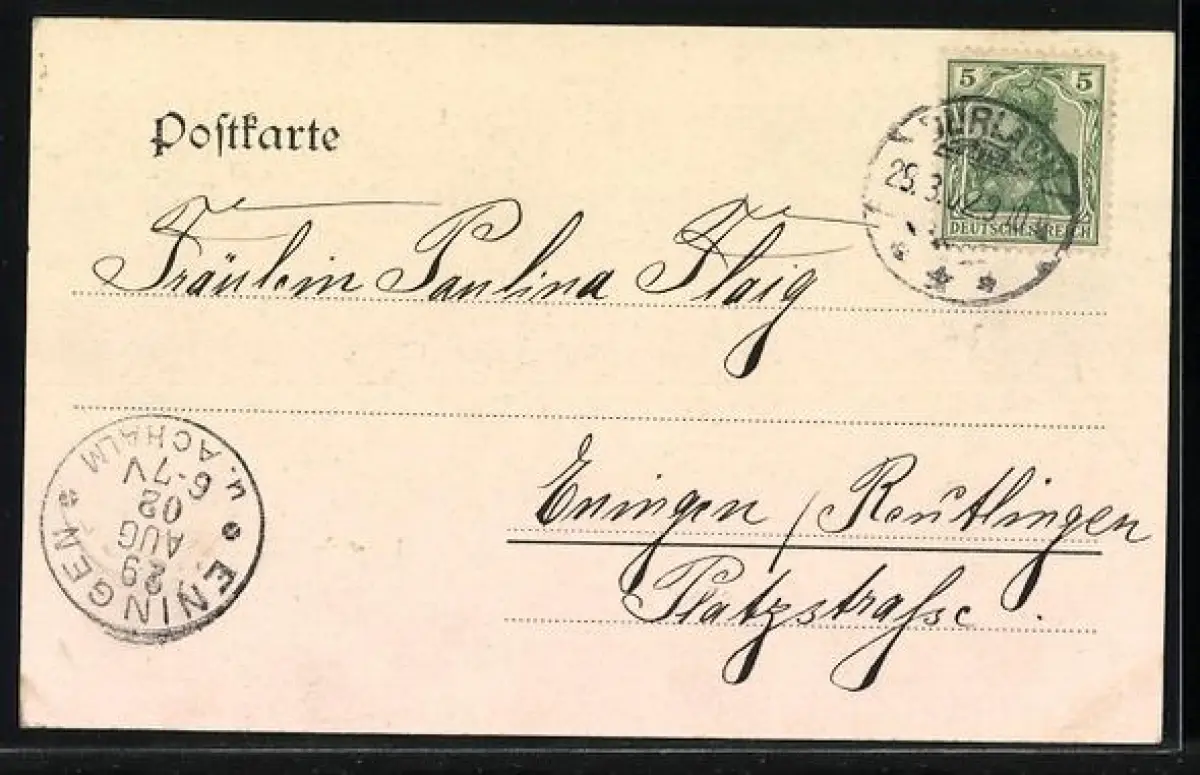 5 5
DEUTSCHES REICH
DURLACH
Postkarte
Fräulein Paulina Flaig
Eningen / Reutlingen
Platzstraſse.
ENINGEN
u. ACHALM
29
AUG
02
6-7V